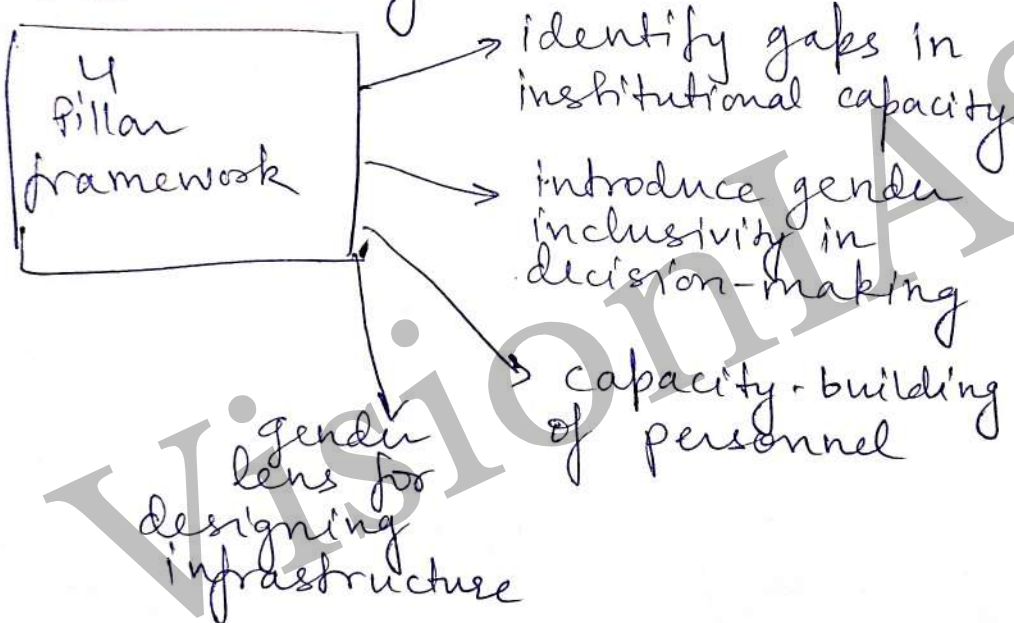 4
Pillar
framework
identify gaps in
institutional capacity
introduce gender
inclusivity in
decision-making
capacity-building
of personnel
gender
lens for
designing
infrastructure
VisionIAS